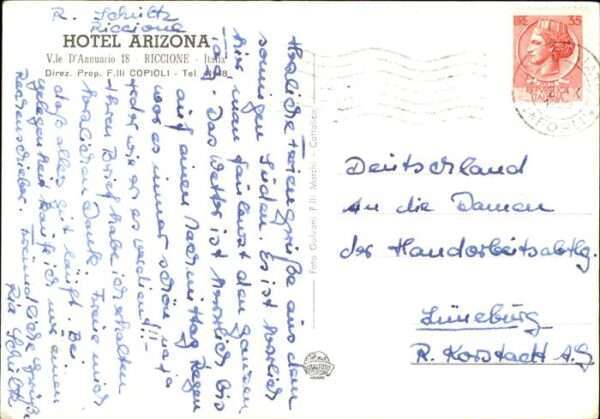 R. Schültz
Riccione
HOTEL ARIZONA
V.le D'Annunzio 18 - RICCIONE - Italia
Direz. Prop. F.lli COPIOLI - Tel.
Herzliche Feriengrüße aus dem
sonnigen Süden. Es ist herrlich
hier man faulenzt den ganzen
Tag. Das Wetter ist herrlich bis
auf einen Nachmittag Regen
war es immer schön, na ja
jeder wie er es verdient!!-
Ihren Brief habe ich erhalten
herzlichen Dank. Freue mich
daß alles gut läuft. Bei
Gelegenheit kaufe ich mir einen
Rechenschieber. Freundliche Grüße
Ria Schültz
Foto Galvani F.lli Marchi - Cattolica
LIRE 35
ITALIANE
Deutschland
An die Damen
der Handarbeitsabtlg.
Lüneburg
R. Karstadt A.G